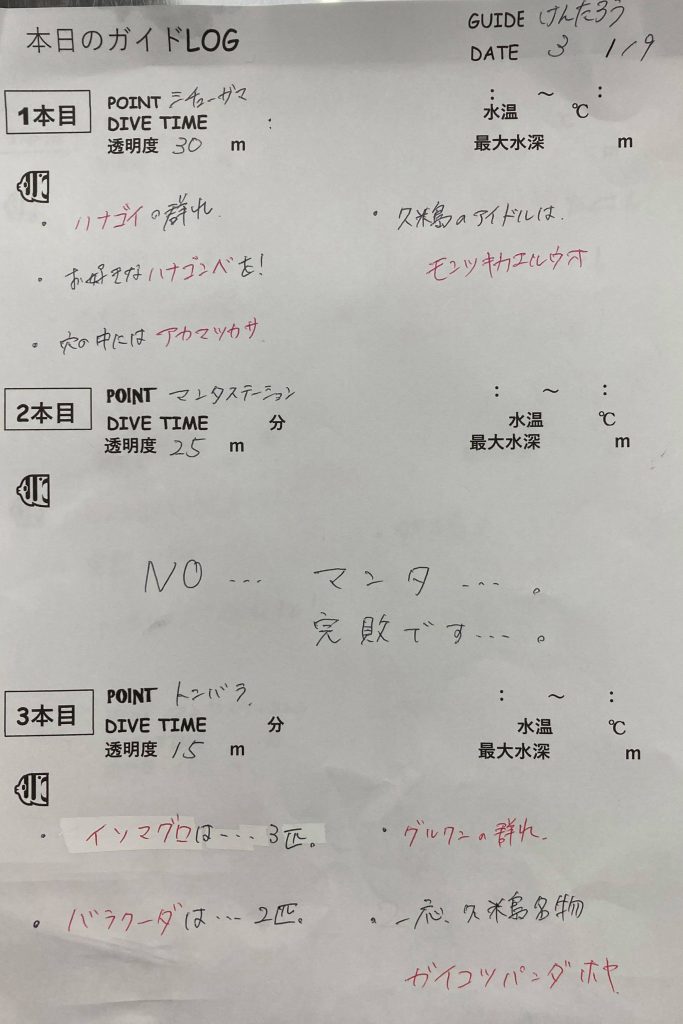 本日のガイドLOG
GUIDE けんたろう
DATE 3 1/9
1本目
POINT シチューガマ
: ~ :
DIVE TIME :
水温 ℃
透明度 30 m
最大水深 m
・ハナゴイの群れ.
・お好きなハナゴンベを!
・穴の中には アカマツカサ
・久米島のアイドルは.
モンツキカエルウオ
2本目
POINT マンタステーション
: ~ :
DIVE TIME 分
水温 ℃
透明度 25 m
最大水深 m
NO… マンタ…。
完敗です…。
3本目
POINT トンバラ.
: ~ :
DIVE TIME 分
水温 ℃
透明度 15 m
最大水深 m
・イソマグロは…3匹。
・バラクーダは…2匹。
・グルクンの群れ.
・一応、久米島名物
ガイコツパンダホヤ